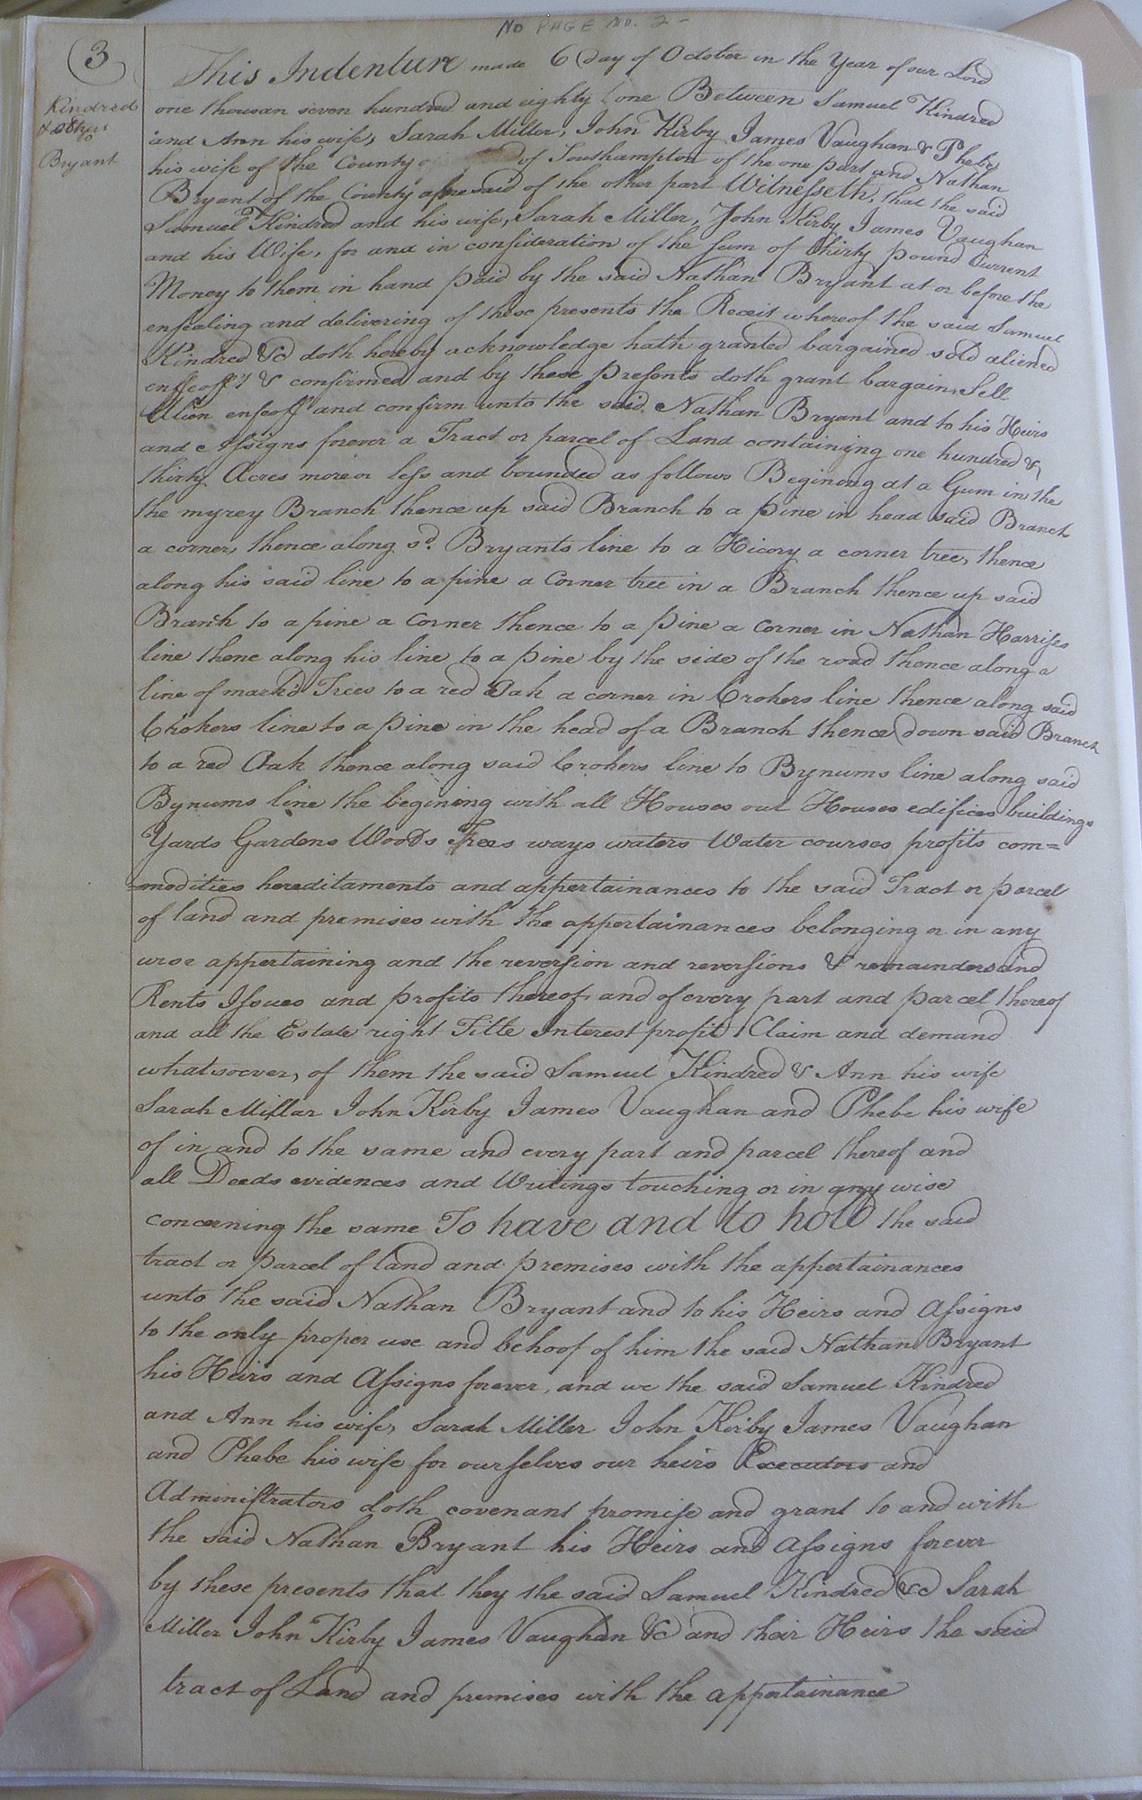 NO PAGE NO. 2 -
3
Kindred
& others
to
Bryant
This Indenture made 6 Day of October in the Year of our Lord
one thousan seven hundred and eighty one Between Samuel Kindred
and Ann his wife, Sarah Miller, John Kirby James Vaughan & Phebe
his wife of the County of Southampton of the one part and Nathan
Bryant of the County aforesaid of the other part Witnesseth, that the said
Samuel Kindred and his wife, Sarah Miller, John Kirby James Vaughan
and his Wife, for and in consideration of the sum of thirty pound Current
Money to them in hand paid by the said Nathan Bryant at or before the
ensealing and delivering of these presents the Receit whereof the said Samuel
Kindred &c doth hereby acknowledge hath granted bargained sold aliened
enfeoff'd & confirmed and by these presents doth grant bargain, Sell
Alien enfeoff and confirm unto the said Nathan Bryant and to his Heirs
and Assigns forever a Tract or parcel of Land containing one hundred &
thirty Acres more or less and bounded as follows Begining at a Gum in the
the myrey Branch thence up said Branch to a pine in head said Branch
a corner, thence along sd. Bryants line to a Hicory a corner tree, thence
along his said line to a pine a Corner tree in a Branch thence up said
Branch to a pine a Corner thence to a pine a Corner in Nathan Harrises
line thenc along his line to a pine by the side of the road thence along a
line of mark'd Trees to a red Oak a corner in Crokers line thence along said
Crokers line to a pine in the head of a Branch thence down said Branch
to a red Oak thence along said Crokers line to Bynums line along said
Bynums line the begining with all Houses out Houses edifices buildings
Yards Gardens Woods Trees ways waters Water courses profits com=
=modities hereditaments and appertainances to the said Tract or parcel
of land and premises with the appertainances belonging or in any
wise appertaining and the reversion and reversions & remainders and
Rents Issues and profits thereof, and of every part and parcel thereof
and all the Estate right Title interest profit Claim and demand
whatsoever, of them the said Samuel Kindred & Ann his wife
Sarah Millar John Kirby James Vaughan and Phebe his wife
of in and to the same and every part and parcel thereof and
all Deeds evidences and Writings touching or in any wise
concerning the same To have and to hold the said
tract or parcel of land and premises with the appertainances
unto the said Nathan Bryant and to his Heirs and Assigns
to the only proper use and behoof of him the said Nathan Bryant
his Heirs and Assigns forever, and we the said Samuel Kindred
and Ann his wife, Sarah Miller John Kirby James Vaughan
and Phebe his wife for ourselves our heirs Executors and
Administrators doth covenant promise and grant to and with
the said Nathan Bryant his Heirs and Assigns forever
by these presents that they the said Samuel Kindred &c Sarah
Miller John Kirby James Vaughan &c and their Heirs the said
tract of Land and premises with the appertainance